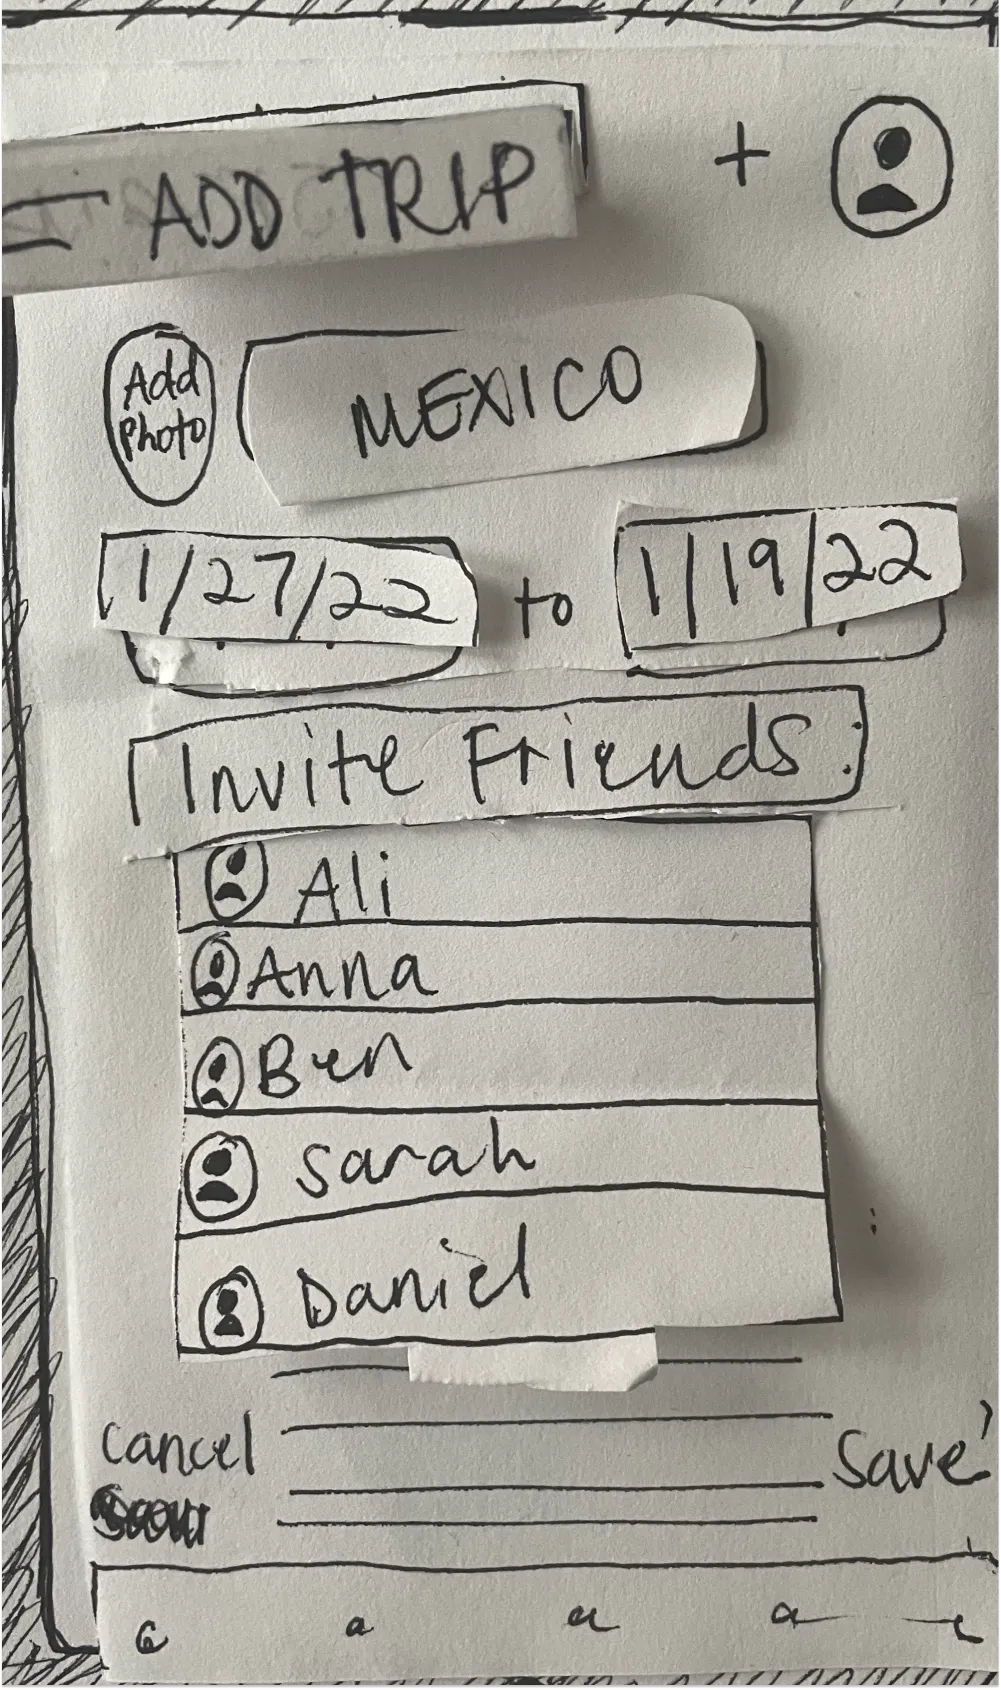 ADD TRIP +
Add
Photo
MEXICO
1/27/22 to 1/19/22
Invite Friends
Ali
Anna
Ben
Sarah
Daniel
Cancel
Save
a a a